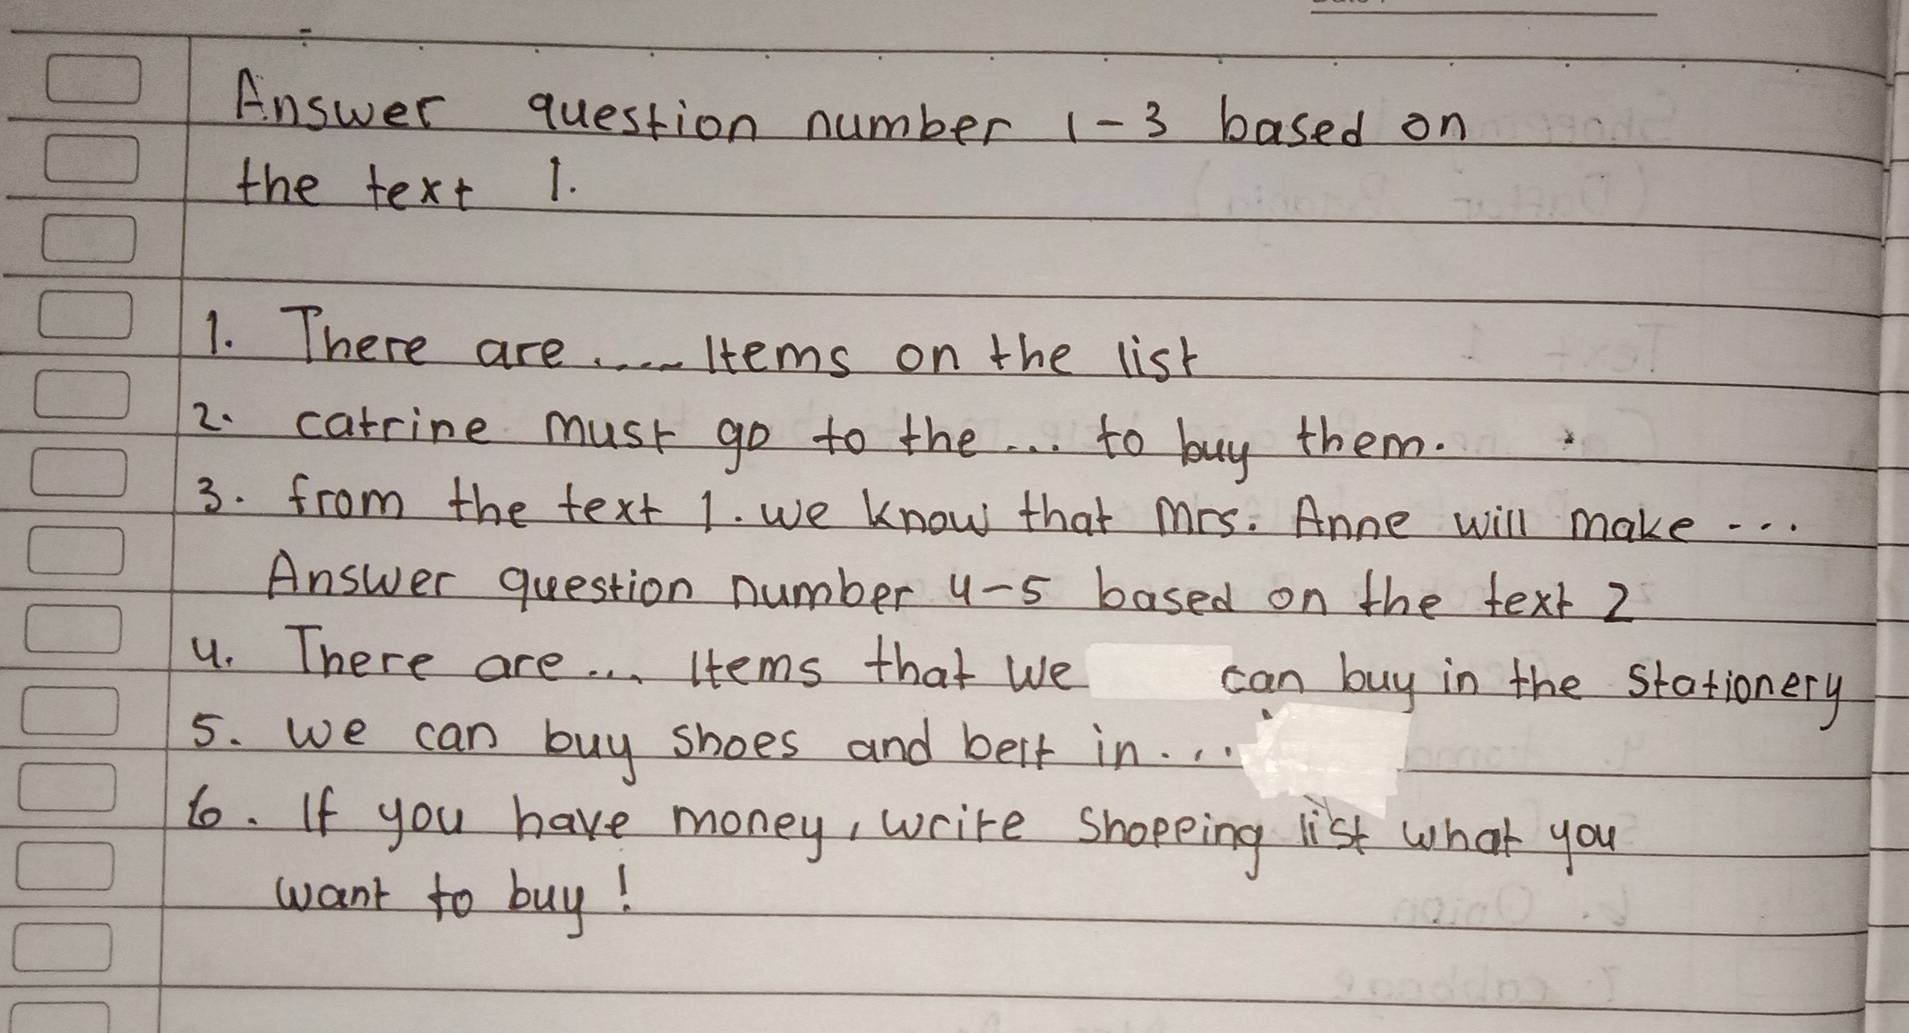 Answer question number 1-3 based on
the text 1.
1. There are ..... Items on the list
2. catrine must go to the ... to buy them.
3. from the text 1. we know that Mrs. Anne will make ...
Answer question number 4-5 based on the text 2
4. There are ... Items that we can buy in the stationery
5. we can buy shoes and belt in ...
6. If you have money, write shopping list what you
want to buy!